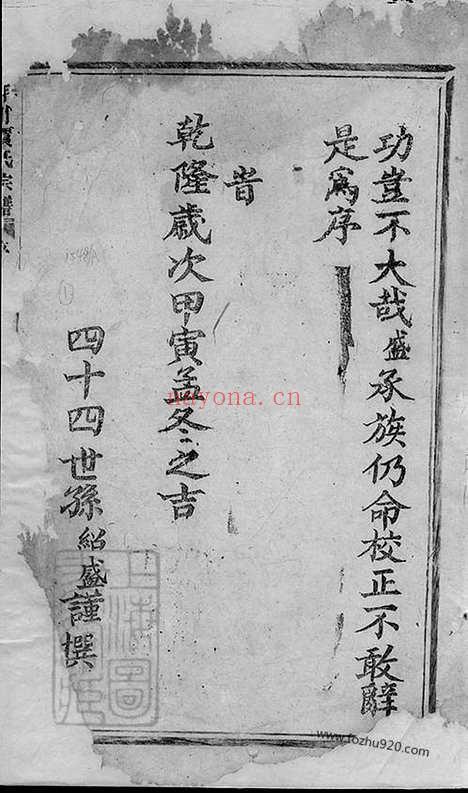 功豈不大哉盛承族仍命校正不敢辭
是為序
旹
乾隆歲次甲寅孟冬之吉
四十四世孫紹盛謹撰
氏宗譜
1548/A
1
nayona.cn
上海圖
www.fozhu920.com